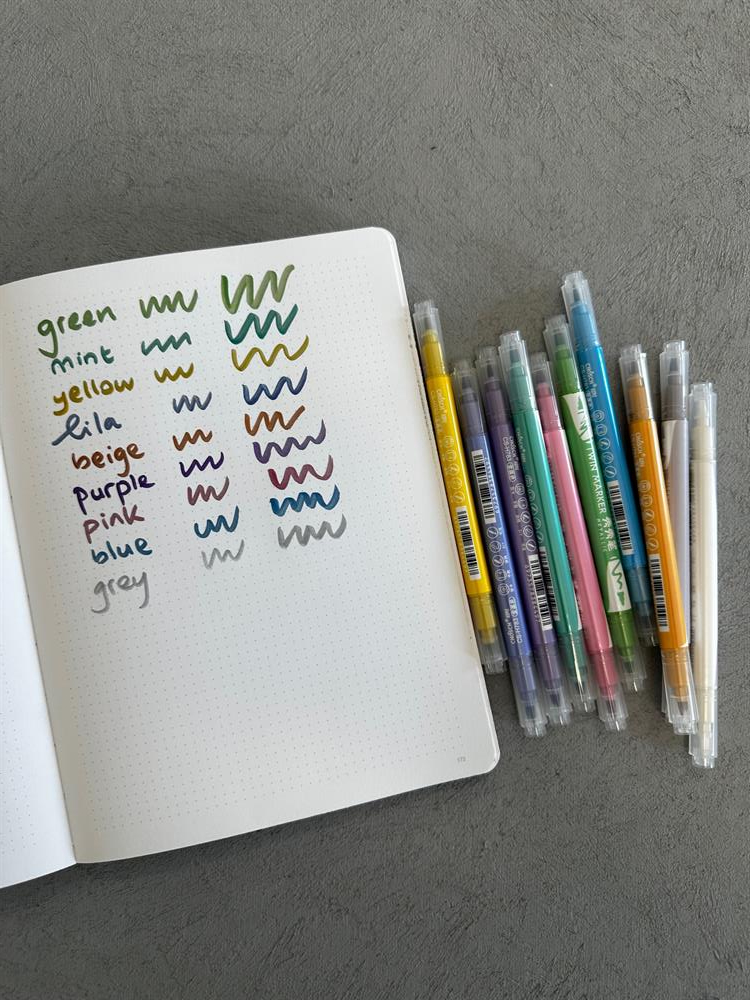 green
mint
yellow
lila
beige
purple
pink
blue
grey
173
TWIN MARKER